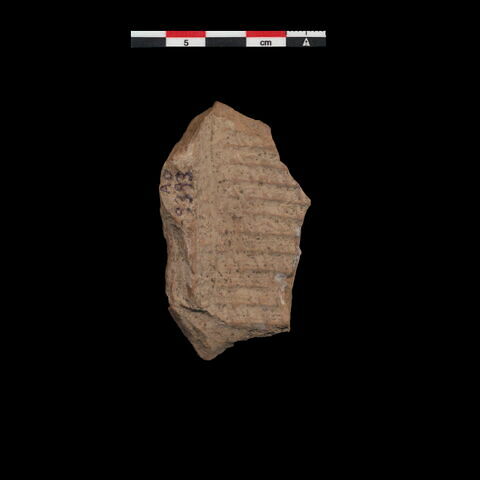 5 cm A
AO
9393